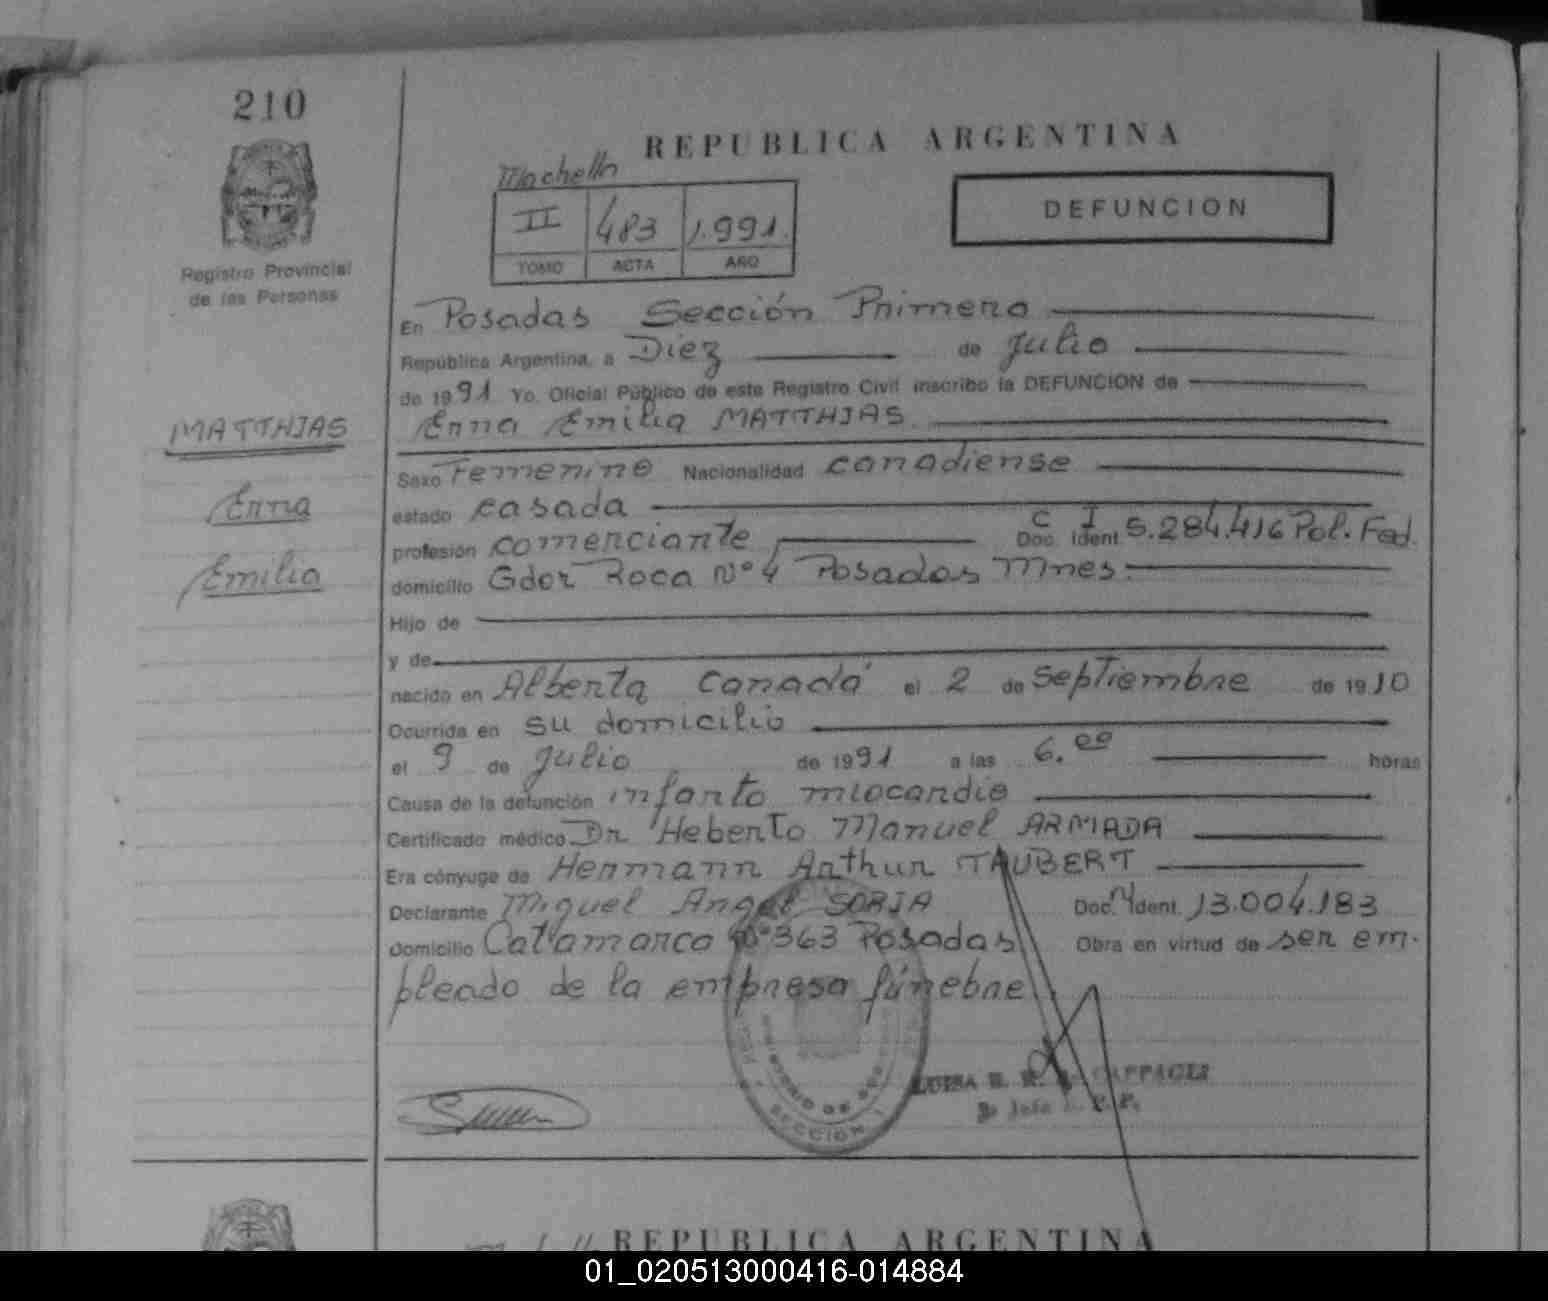 210
REPUBLICA ARGENTINA
Registro Provincial
de las Personas
II 483 1.991.
TOMO ACTA AÑO
DEFUNCION
En Posadas Sección Primera
República Argentina, a Diez de Julio
de 1991 Yo, Oficial Público de este Registro Civil inscribo la DEFUNCION de
Erna Emilia MATTHIAS.
MATTHIAS
Erna
Emilia
Sexo Femenino Nacionalidad canadiense
estado casada
profesión comerciante C I Doc. Ident. 5.284.416 Pol. Fed.
domicilio Gdor Roca Nº 4 Posadas Mnes.
Hijo de
y de
nacido en Alberta Canadá el 2 de Septiembre de 1910
Ocurrida en su domicilio
el 9 de Julio de 1991 a las 6.00 horas
Causa de la defunción infarto miocardio
Certificado médico Dr Heberto Manuel ARMADA
Era cónyuge de Hermann Arthur TAUBERT
Declarante Miguel Angel SORIA Doc. Ident. 13.004.183
Domicilio Catamarca Nº 363 Posadas Obra en virtud de ser em-
pleado de la empresa fúnebre
LUISA
SECCION 1
REPUBLICA ARGENTINA
01_020513000416-014884